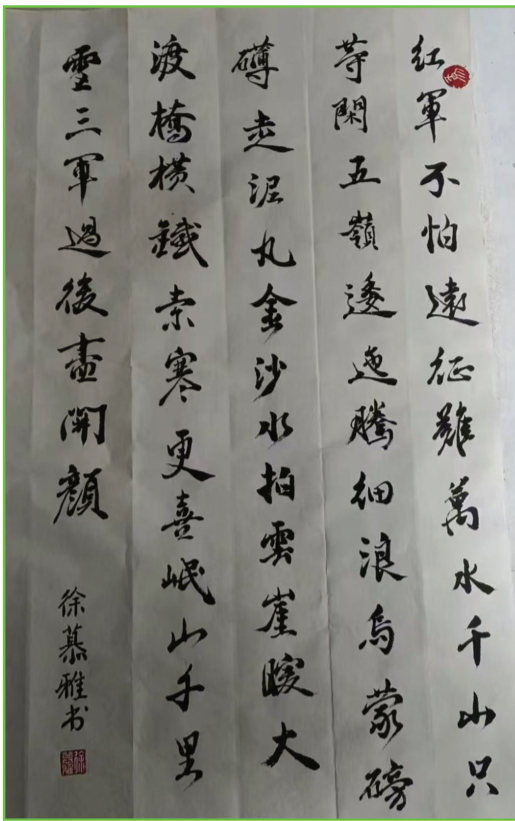 紅軍不怕遠征難萬水千山只
等閑五嶺逶迤騰細浪烏蒙磅
礡走泥丸金沙水拍雲崖暖大
渡橋橫鐵索寒更喜岷山千里
雪三軍過後盡開顏
徐慕雅书